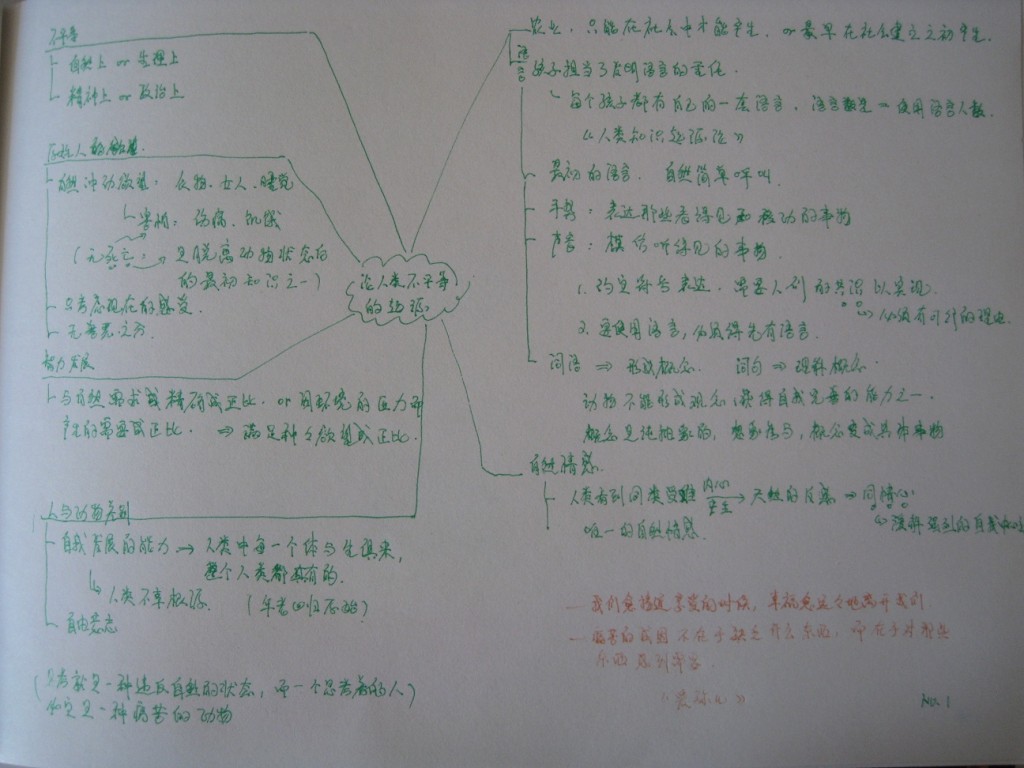 不平等
自然上 or 生理上
精神上 or 政治上
原始人的欲望
自然冲动欲望：食物、女人、睡觉
害怕：伤痛、饥饿
（无死亡：→是脱离动物状态后
的最初知识之一）
只考虑现在的感受。
无善恶之分
智力发展
与自然需求成正比. or 同环境的压力而
产生的需要成正比. ⇒ 满足种种欲望成正比.
人与动物差别
自我发展的能力 → 人类中每一个体与生俱来，
整个人类都具有的.
人类不幸根源. （年老回归原始）
自由意志
（思考就是一种违反自然的状态，而一个思考着的人）
的确是一种病苦的动物
论人类不平等
的起源
农业，只能在社会中才能产生，or 最早在社会建立之初产生.
语言
孩子担当了发明语言的重任.
每个孩子都有自己的一套语言，语言数量 = 使用语言人数.
《人类知识起源论》
最初的语言. 自然简单呼叫.
手势：表达那些看得见而移动的事物
声音：模仿听得见的事物
1. 约定符号表达，需要人们的共识以实现.
必须有可行的理由.
2. 要使用语言，必须得先有语言.
词语 ⇒ 形成概念. 词句 ⇒ 理解概念.
动物不能形成观念，获得自我完善的能力之一.
概念是纯抽象的，想象参与，概念变成具体事物
自然情感.
人类看到同类受难 内心产生 → 天然的反感 ⇒ 同情心
唯一的自然情感. 缓解强烈的自我中心
— 我们会接近享受的时候，幸福会远远地离开我们
— 痛苦的原因不在于缺乏什么东西，而在于对
感到
《爱弥儿》
No. 1